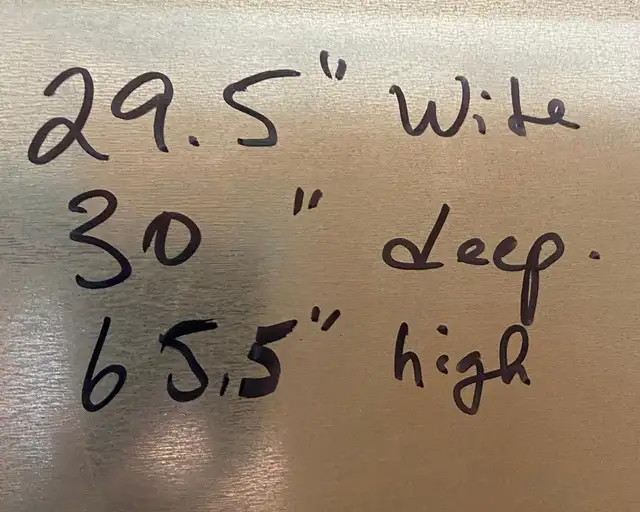 29.5" Wide
30 " deep.
65.5" high